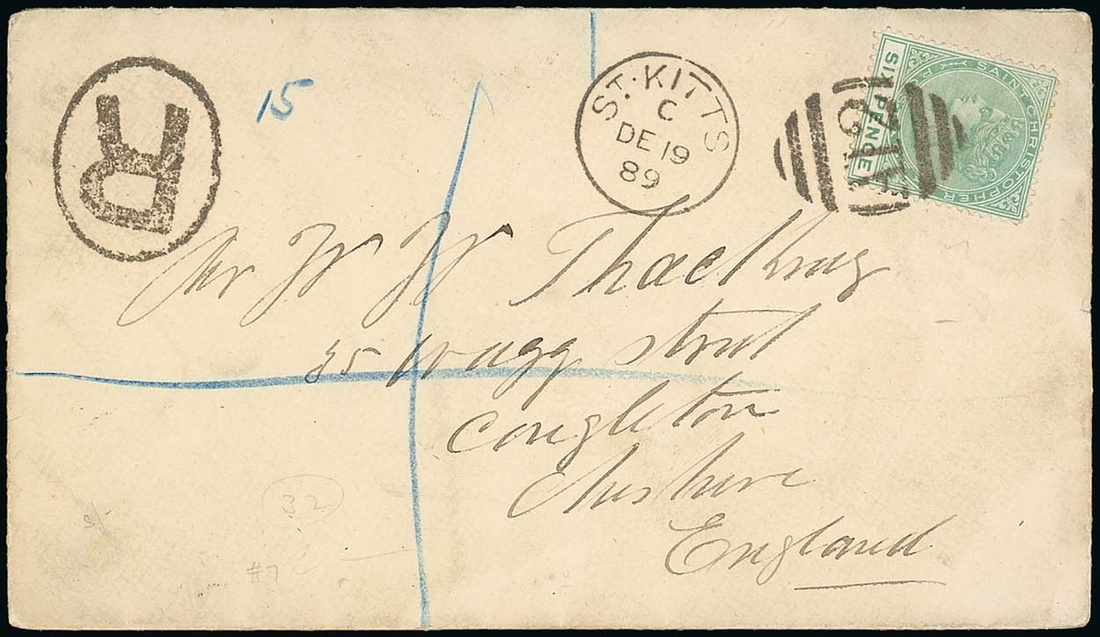 R
15
ST. KITTS
C
DE 19
89
A12
SAINT CHRISTOPHER
SIX PENCE
Mr W W Thackray
35 Wagg Street
Congleton
Cheshire
England
32
#7